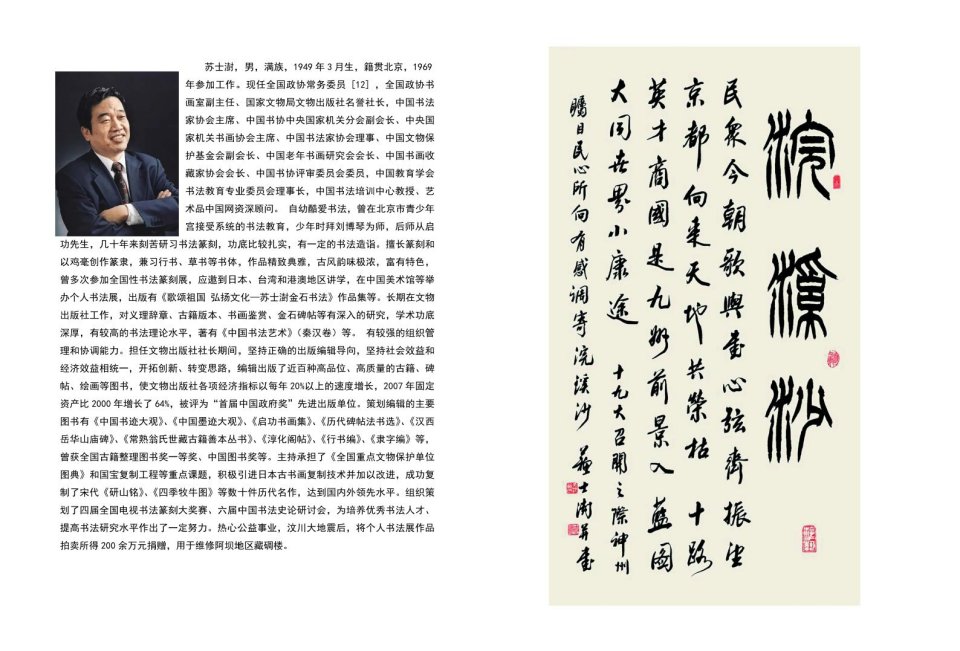 苏士澍，男，满族，1949 年 3 月生，籍贯北京，1969
年参加工作。现任全国政协常务委员 [12] ，全国政协书
画室副主任、国家文物局文物出版社名誉社长，中国书法
家协会主席、中国书协中央国家机关分会副会长、中央国
家机关书画协会主席、中国书法家协会理事、中国文物保
护基金会副会长、中国老年书画研究会会长、中国书画收
藏家协会会长、中国书协评审委员会委员，中国教育学会
书法教育专业委员会理事长，中国书法培训中心教授、艺
术品中国网资深顾问。 自幼酷爱书法，曾在北京市青少年
宫接受系统的书法教育，少年时拜刘博琴为师，后师从启
功先生，几十年来刻苦研习书法篆刻，功底比较扎实，有一定的书法造诣。擅长篆刻和
以鸡毫创作篆隶，兼习行书、草书等书体，作品精致典雅，古风韵味极浓，富有特色，
曾多次参加全国性书法篆刻展，应邀到日本、台湾和港澳地区讲学，在中国美术馆等举
办个人书法展，出版有《歌颂祖国 弘扬文化—苏士澍金石书法》作品集等。长期在文物
出版社工作，对义理辞章、古籍版本、书画鉴赏、金石碑帖等有深入的研究，学术功底
深厚，有较高的书法理论水平，著有《中国书法艺术》（秦汉卷）等。 有较强的组织管
理和协调能力。担任文物出版社社长期间，坚持正确的出版编辑导向，坚持社会效益和
经济效益相统一，开拓创新、转变思路，编辑出版了近百种高品位、高质量的古籍、碑
帖、绘画等图书，使文物出版社各项经济指标以每年 20%以上的速度增长，2007 年固定
资产比 2000 年增长了 64%，被评为“首届中国政府奖”先进出版单位。策划编辑的主要
图书有《中国书迹大观》、《中国墨迹大观》、《启功书画集》、《历代碑帖法书选》、《汉西
岳华山庙碑》、《常熟翁氏世藏古籍善本丛书》、《淳化阁帖》、《行书编》、《隶字编》等，
曾获全国古籍整理图书奖一等奖、中国图书奖等。主持承担了《全国重点文物保护单位
图典》和国宝复制工程等重点课题，积极引进日本古书画复制技术并加以改进，成功复
制了宋代《研山铭》、《四季牧牛图》等数十件历代名作，达到国内外领先水平。组织策
划了四届全国电视书法篆刻大奖赛、六届中国书法史论研讨会，为培养优秀书法人才、
提高书法研究水平作出了一定努力。热心公益事业，汶川大地震后，将个人书法展作品
拍卖所得 200 余万元捐赠，用于维修阿坝地区藏碉楼。
浣溪沙
民众今朝歌舆画心弦齊振坐
京都向来天地共榮枯十路
英才商國是九州前景入藍圖
大同世界小康途 十九大召開之際神州
矚目民心所向有感調寄浣溪沙 蘇士澍并書